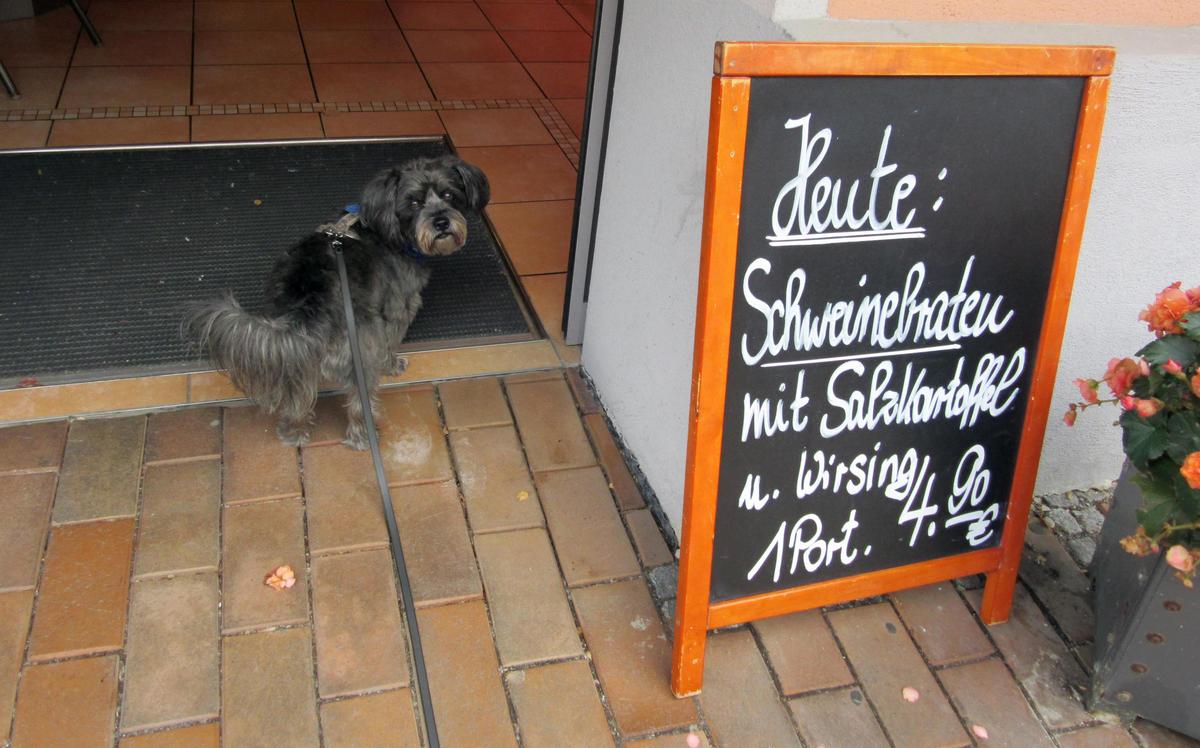 Heute:
Schweinebraten
mit Salzkartoffel
u. Wirsing
1 Port. 4.90 €